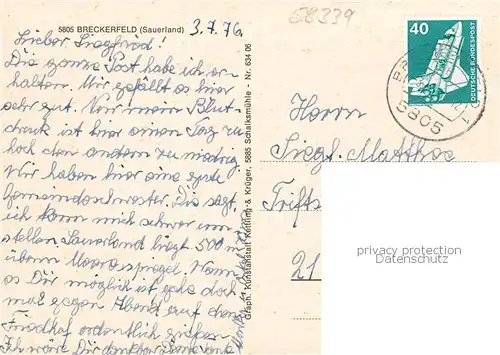 5805 BRECKERFELD (Sauerland)
3.7.76
58339
Lieber Siegfried!
Die ganze Post habe ich er-
halten. Mir gefällt es hier
sehr gut. Nur mein Blut-
druck ist hier einen Tag zu
hoch den andern zu niedrig
Wir haben hier eine gute
Gemeindeschwester. Die sagt,
ich kann mich schwer um-
stellen, Sauerland liegt 500 m
überm Meeresspiegel. Wenn
es Dir möglich ist gehe doch
mal gegen Abend auf den
Friedhof ordentlich gießen
Ich wäre Dir dankbar
Graph. Kunstanstalt Kettling & Krüger, 5885 Schalksmühle - Nr. 634 06
40
DEUTSCHE BUNDESPOST
5805
1
Herrn
Siegf. Matthes
Trifts
21
privacy protection
Datenschutz